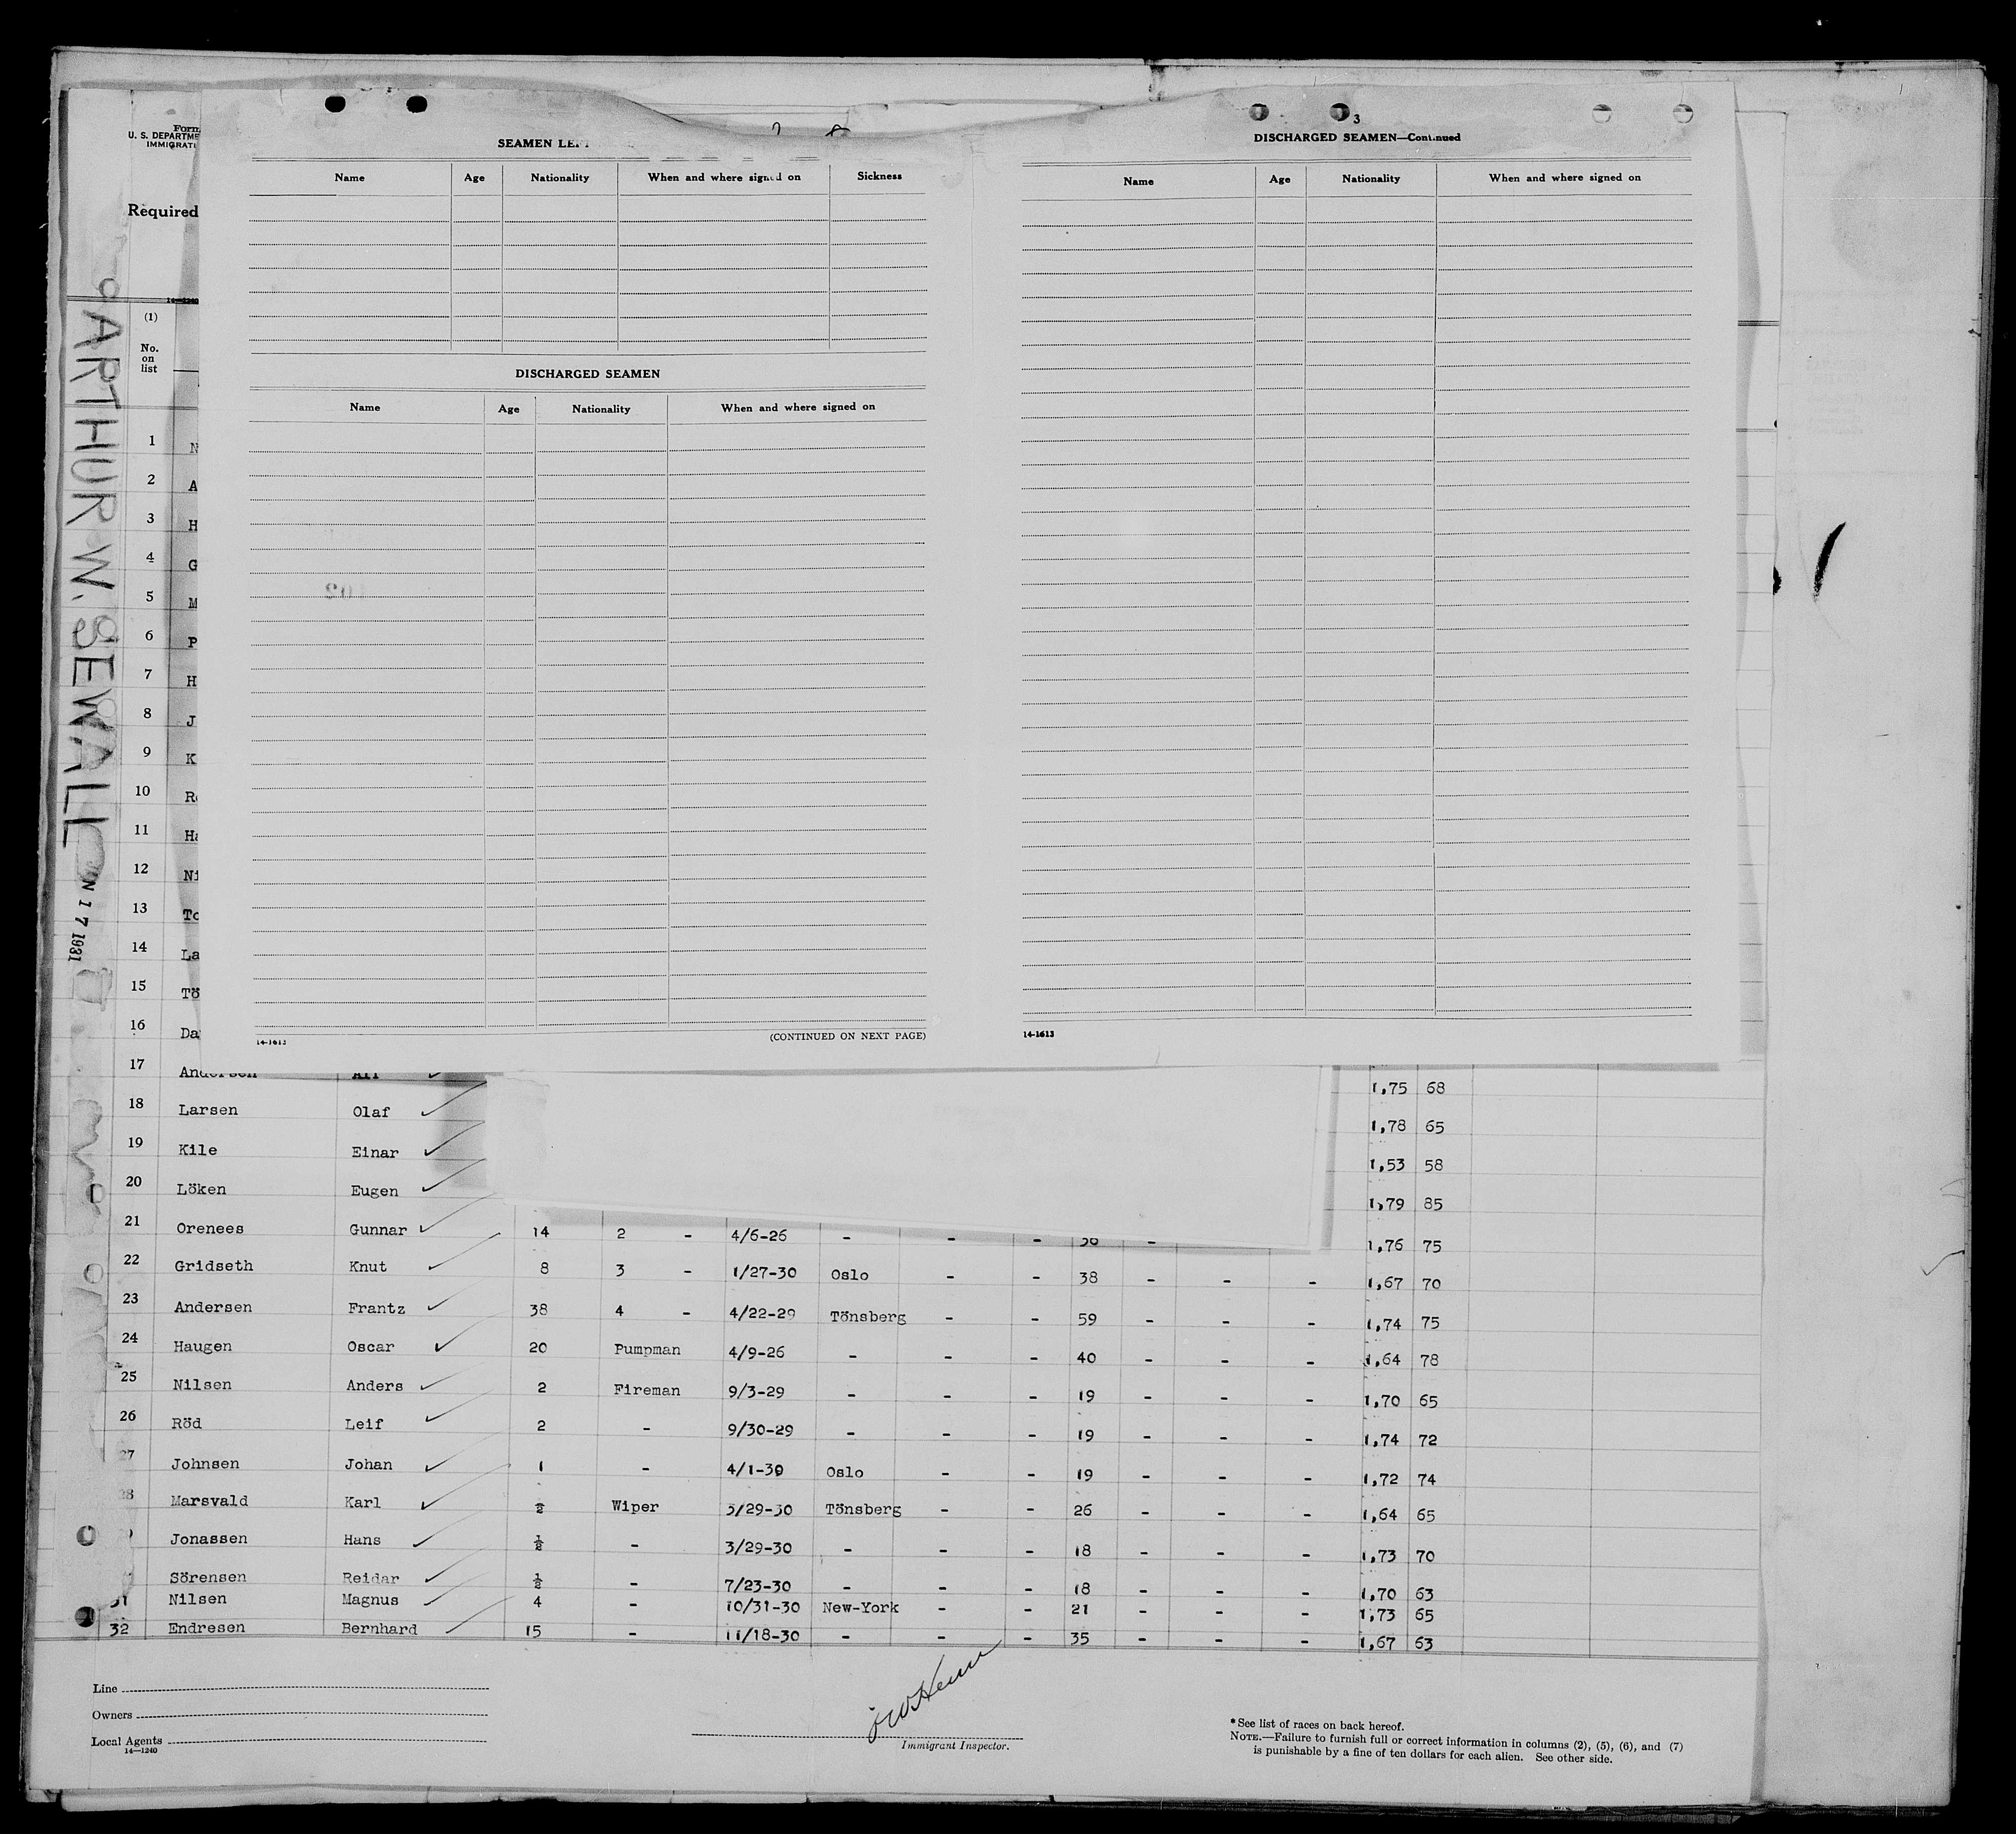 Form
U. S. DEPARTME
IMMIGRATI
Required
14—1240
(1)
No.
on
list
ARTHUR W. SEWALL
N 17 1931
SEAMEN LEFT
Name Age Nationality When and where signed on Sickness
DISCHARGED SEAMEN
Name Age Nationality When and where signed on
(CONTINUED ON NEXT PAGE)
3
DISCHARGED SEAMEN—Continued
Name Age Nationality When and where signed on
14-1613
1 N
2 A
3 H
4 G
5 M
6 P
7 H
8 J
9 K
10 R
11 Ha
12 Ni
13 To
14 La
15 Tö
16 Da
17 Andersen 1,75 68
18 Larsen Olaf 1,78 65
19 Kile Einar 1,53 58
20 Löken Eugen 1,79 85
21 Orenees Gunnar 14 2 - 4/6-26 - - - - 1,76 75
22 Gridseth Knut 8 3 - 1/27-30 Oslo - - 38 - - - 1,67 70
23 Andersen Frantz 38 4 - 4/22-29 Tönsberg - - 59 - - - 1,74 75
24 Haugen Oscar 20 Pumpman 4/9-26 - - - 40 - - - 1,64 78
25 Nilsen Anders 2 Fireman 9/3-29 - - - 19 - - - 1,70 65
26 Röd Leif 2 - 9/30-29 - - - 19 - - - 1,74 72
27 Johnsen Johan 1 - 4/1-30 Oslo - - 19 - - - 1,72 74
28 Marsvald Karl ½ Wiper 3/29-30 Tönsberg - - 26 - - - 1,64 65
Jonassen Hans ½ - 3/29-30 - - - 18 - - - 1,73 70
Sörensen Reidar ½ - 7/23-30 - - - 18 - - - 1,70 63
31 Nilsen Magnus 4 - 10/31-30 New-York - - 21 - - - 1,73 65
32 Endresen Bernhard 15 - 11/18-30 - - - 35 - - - 1,67 63
Line
Owners
Local Agents
14—1240
Immigrant Inspector.
*See list of races on back hereof.
NOTE.—Failure to furnish full or correct information in columns (2), (5), (6), and (7)
is punishable by a fine of ten dollars for each alien. See other side.